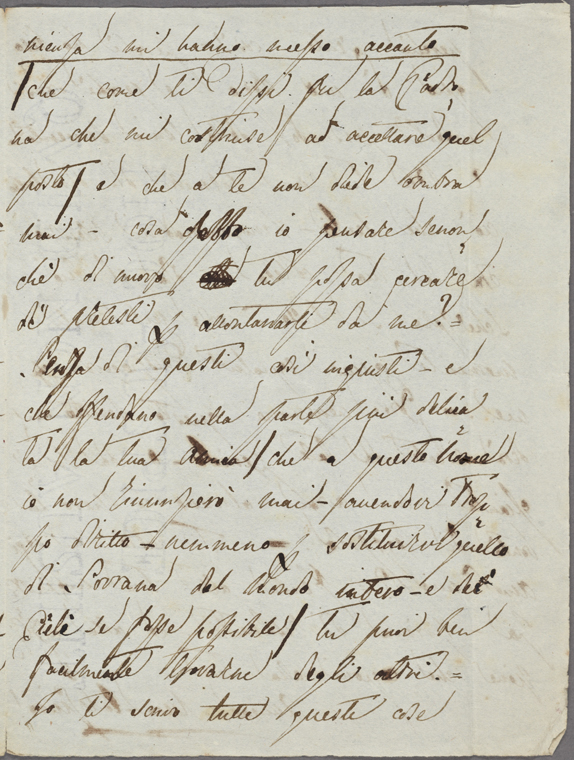 mi hanno messo accanto
che come ti dissi fu la Padro
na che mi costrinse ad accettare quel
posto / e che a te non diede ombra
mai - cosa debbo io pensare senon
che di nuovo tu possa cercare
di pretesti p allontanarti da me? =
Senza di questi così ingiusti - e
che offendano nella parte più delica
ta la tua Amica / che a questo nome
io non rinunzierò mai - avendovi trop
po diritto - nemmeno p sostituirvi quello
di Sovrana del Mondo intero - e dei
Cieli se fosse possibile / tu puoi ben
facilmente trovarne degli altri. =
Io ti scrivo tutte queste cose